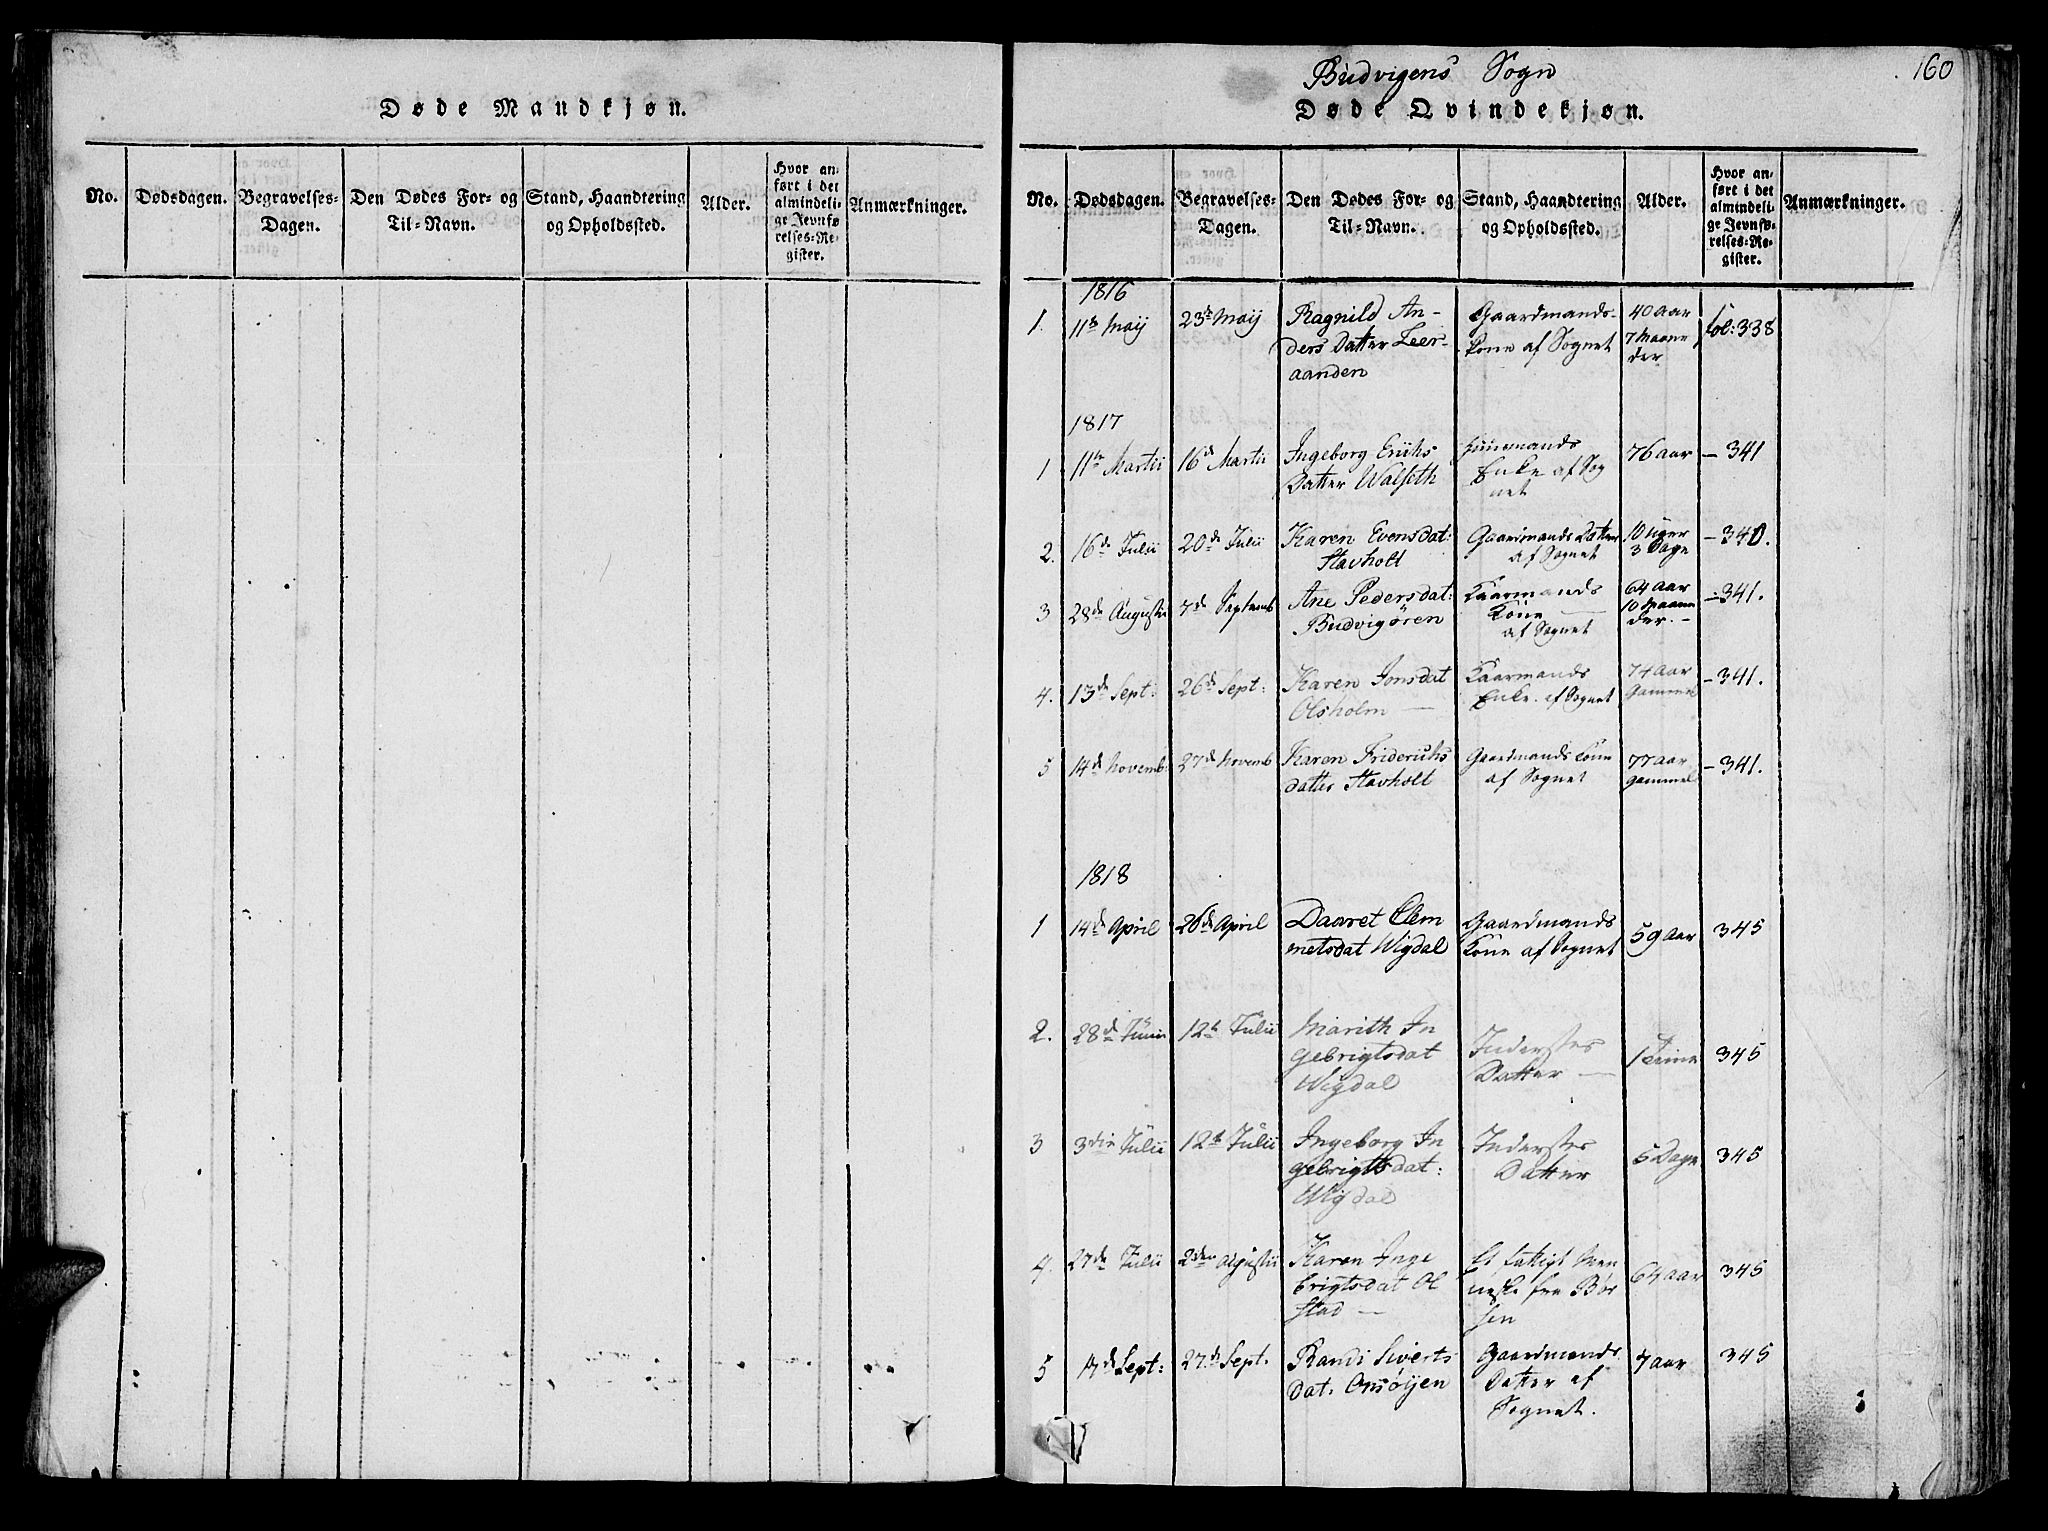 Døde Mandkjøn.
No.
Dødsdagen.
Begravelses-
Dagen.
Den Dødes For- og
Til-Navn.
Stand, Haandtering
og Opholdssted.
Alder.
Hvor an-
ført i det
almindeli-
ge Jevnfø-
relses-Re-
gister.
Anmærkninger.
160
Budvigens Sogn
Døde Qvindekjøn.
No.
Dødsdagen.
Begravelses-
Dagen.
Den Dødes For- og
Til-Navn.
Stand, Haandtering
og Opholdssted.
Alder.
Hvor an-
ført i det
almindeli-
ge Jevnfø-
relses-Re-
gister.
Anmærkninger.
1816
1.
11te Maij
23de Maij
Ragnild An-
ders Datter Leer-
aanden
Gaardmands-
kone af Sognet
40 aar
7 Maane
der
fol: 338
1817
1
11te Martii
16de Martii
Ingeborg Erichs
Datter Walseth
Enke af Sog
net
76 aar
- 341
2.
16de Julii
20de Julii
Karen Evensdat:
Stavholt
Gaardmands Datter
af Sognet
10 Uger
3 Dage
- 340.
3
28de Augusti
7de Septemb
Ane Pedersdat:
Budvigøren
Kaarmands
Kone
af Sognet
64 aar
10 Maane
der. -
- 341.
4.
13de Sept:
26de Sept:
Karen Jonsdat
Olsholm -
Kaarmands
Enke. af Sognet
74 aar
gammel
- 341.
5
14de Novemb:
27de Novemb
Karen Friderichs
datter Stavholt
Gaardmands kone
af Sognet
77 aar
gammel
- 341.
1818
1
14de April
26de April
Daaret Clem
metsdat Wigdal
Gaardmands
Kone af Sognet
59 aar
345
2.
28de Junii
12te Julii
Marith In
gebrigtsdat
Wigdal
Inderstes
Datter -
1 Time
345
3
3die Julii
12te Julii
Ingeborg In
gebrigtsdat:
Wigdal
Inderstes
Datter
5 Dage
345
4.
27de Julii
2den Augustii
Karen Inge
brigtsdat Ol
stad -
Et fattigt Men
neske fra Bør
sen
64 aar
345
5
Sept:
27de Sept.
Randi Siverts
dat. Onsøijen
Gaardmands
Datter af
Sognet.
7 aar
345